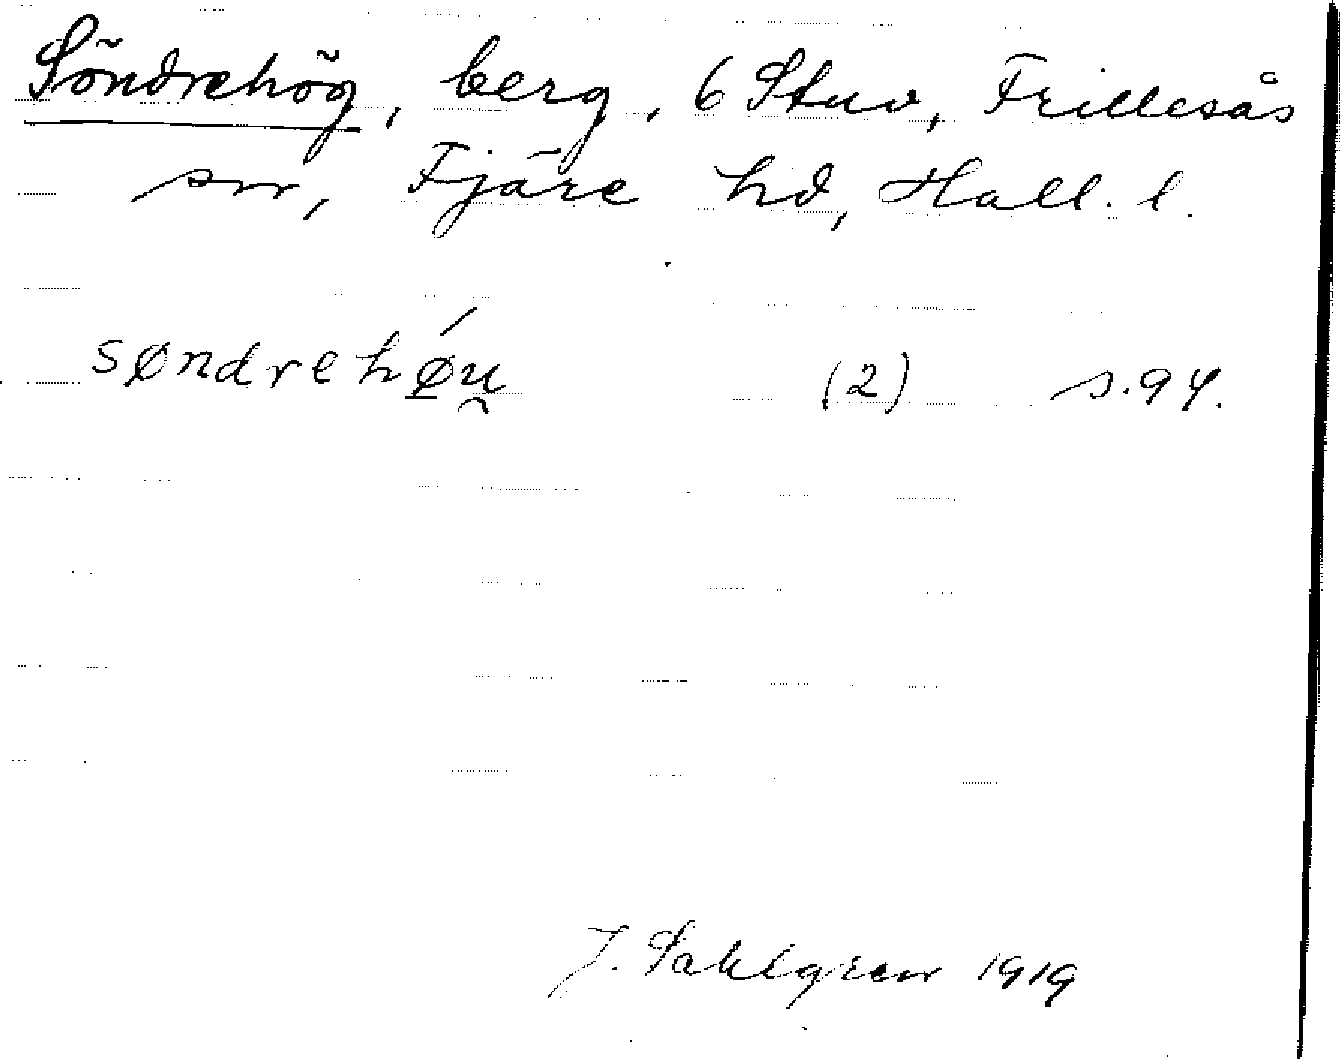 Söndrehög, berg, 6 Stuv, Frillesås
sn, Fjäre hd, Hall. l.
søndrehǿu̯ (2) s.94.
J. Sahlgren 1919